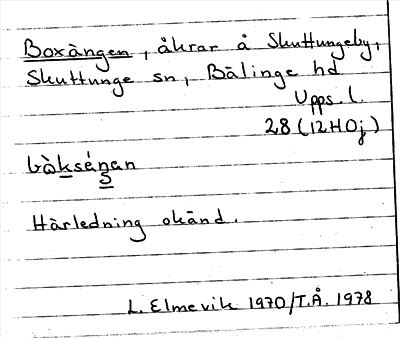 Boxängen, åkrar å Skuttungeby,
Skuttunge sn, Bälinge hd
Upps. l.
28 (12H0j)
Härledning okänd.
L. Elmevik 1970/T.Å. 1978